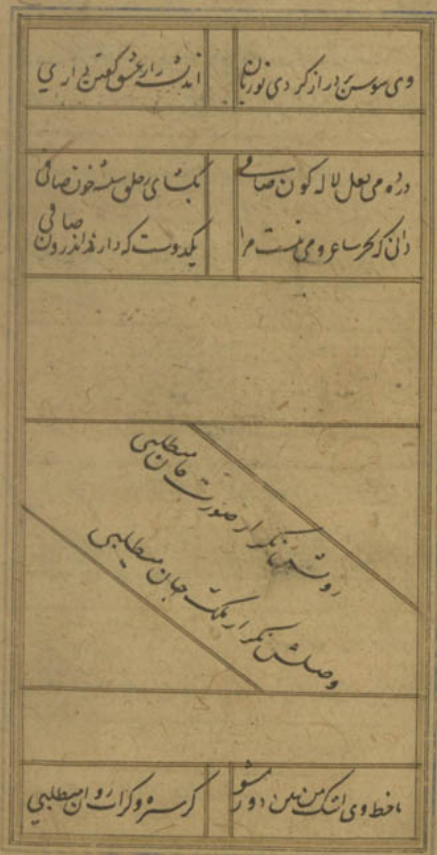 وی سوسن بر دراز کردی تو زبان
اندیشه راز عشق گفتن داری
در ده می لعل لاله گون صافی
بگشای ز حلق شیشه خون صافی
دانی که بجز ساغر و می نیست مرا
یکدوست که دارد اندرون صافی
رویش نگر ار صورت جان میطلبی
وصلش نگر ار ملکت جهان میطلبی
با خط وی اشک من ببین دور مشو
گر سبزه و گر آب روان میطلبی